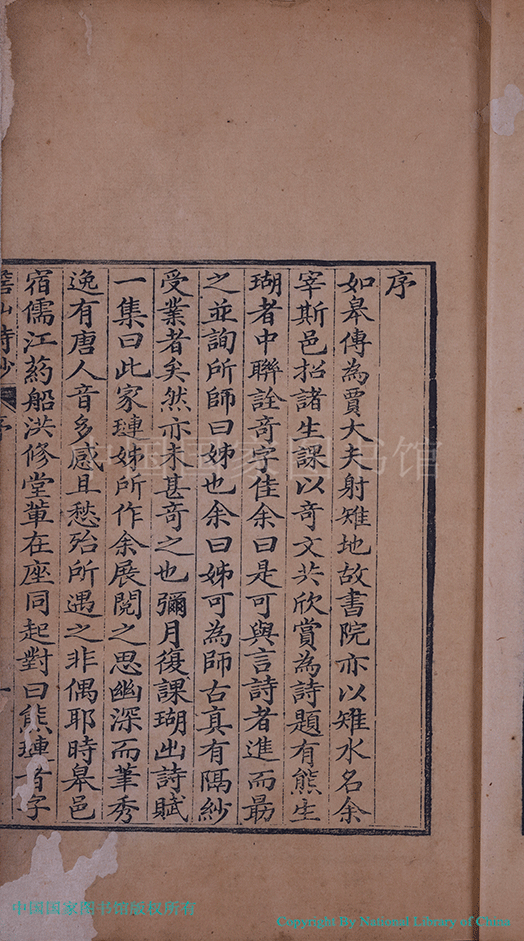 序
如皋傳為賈大夫射雉地故書院亦以雉水名余
宰斯邑招諸生課以奇文共欣賞為詩題有熊生
瑚者中聯詮奇字佳余曰是可與言詩者進而勗
之並詢所師曰姊也余曰姊可為師古真有隔紗
受業者矣然亦未甚奇之也彌月復課瑚出詩賦
一集曰此家璉姊所作余展閱之思幽深而筆秀
逸有唐人音多感且愁殆所遇之非偶耶時皋邑
宿儒江葯船洪修堂軰在座同起對曰熊璉者字
山詩鈔 序 一
中国国家图书馆
中国国家图书馆版权所有
Copyright By National Library of China